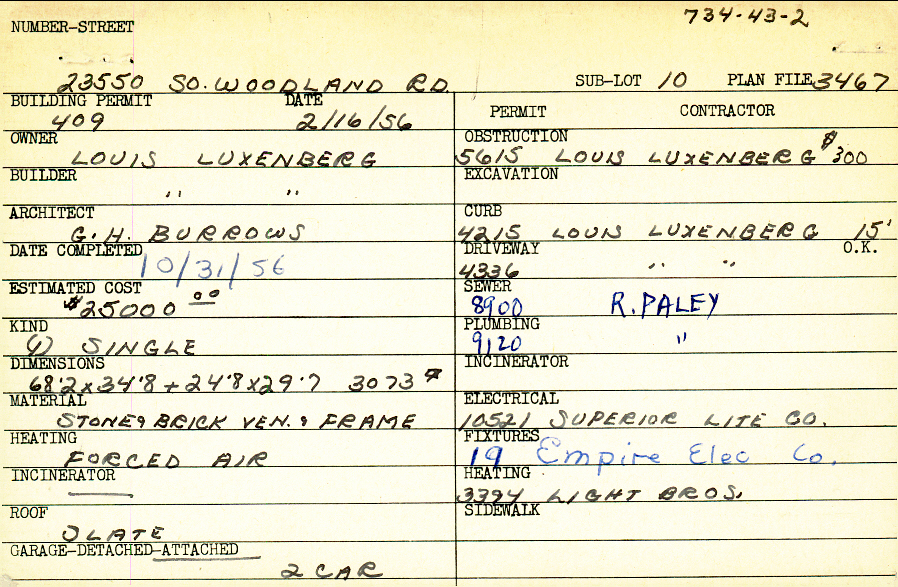 734-43-2
NUMBER-STREET
23550 SO. WOODLAND RD. SUB-LOT 10 PLAN FILE 3467
BUILDING PERMIT DATE
409 2/16/56
OWNER
LOUIS LUXENBERG
BUILDER
" "
ARCHITECT
G. H. BURROWS
DATE COMPLETED
10/31/56
ESTIMATED COST
$25000 00
KIND
(1) SINGLE
DIMENSIONS
68'2 x 34'8 + 24'8 x 29'7 3073 #
MATERIAL
STONE & BRICK VEN. & FRAME
HEATING
FORCED AIR
INCINERATOR
ROOF
SLATE
GARAGE-DETACHED-ATTACHED
2 CAR
PERMIT CONTRACTOR
OBSTRUCTION
5615 LOUIS LUXENBERG $300
EXCAVATION
CURB
4215 LOUIS LUXENBERG 15'
DRIVEWAY O.K.
4336 " "
SEWER
8900 R. PALEY
PLUMBING
9120 "
INCINERATOR
ELECTRICAL
10521 SUPERIOR LITE CO.
FIXTURES
19 Empire Elec Co.
HEATING
3394 LIGHT BROS.
SIDEWALK